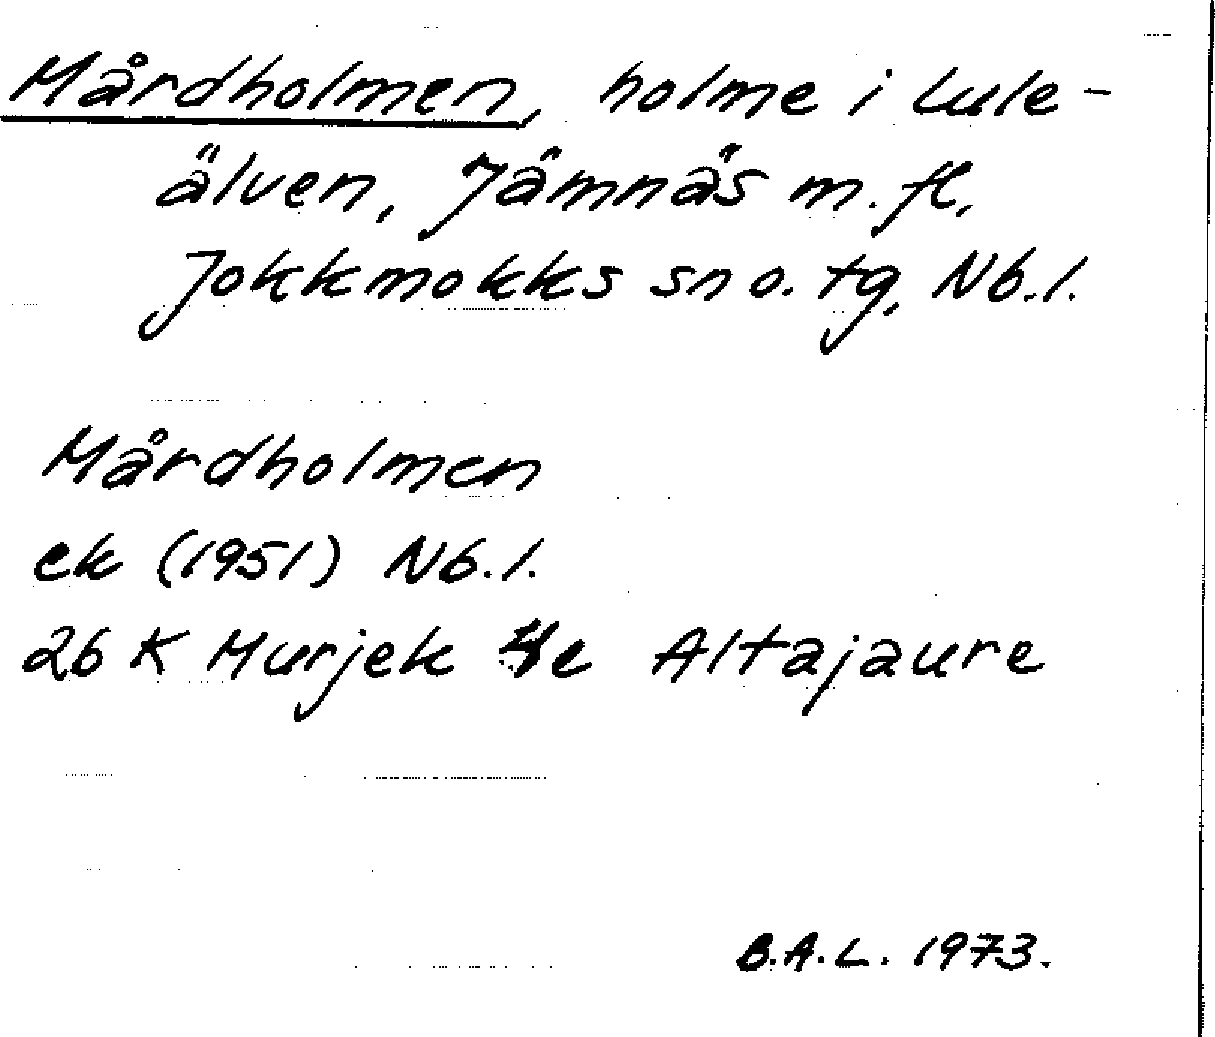 Mårdholmen, holme i Lule-
älven, Jämnäs m. fl,
Jokkmokks sn o. tg, Nb. l.
Mårdholmen
ek (1951) Nb. l.
26 K Murjek 4e Altajaure
B.A.L. 1973.